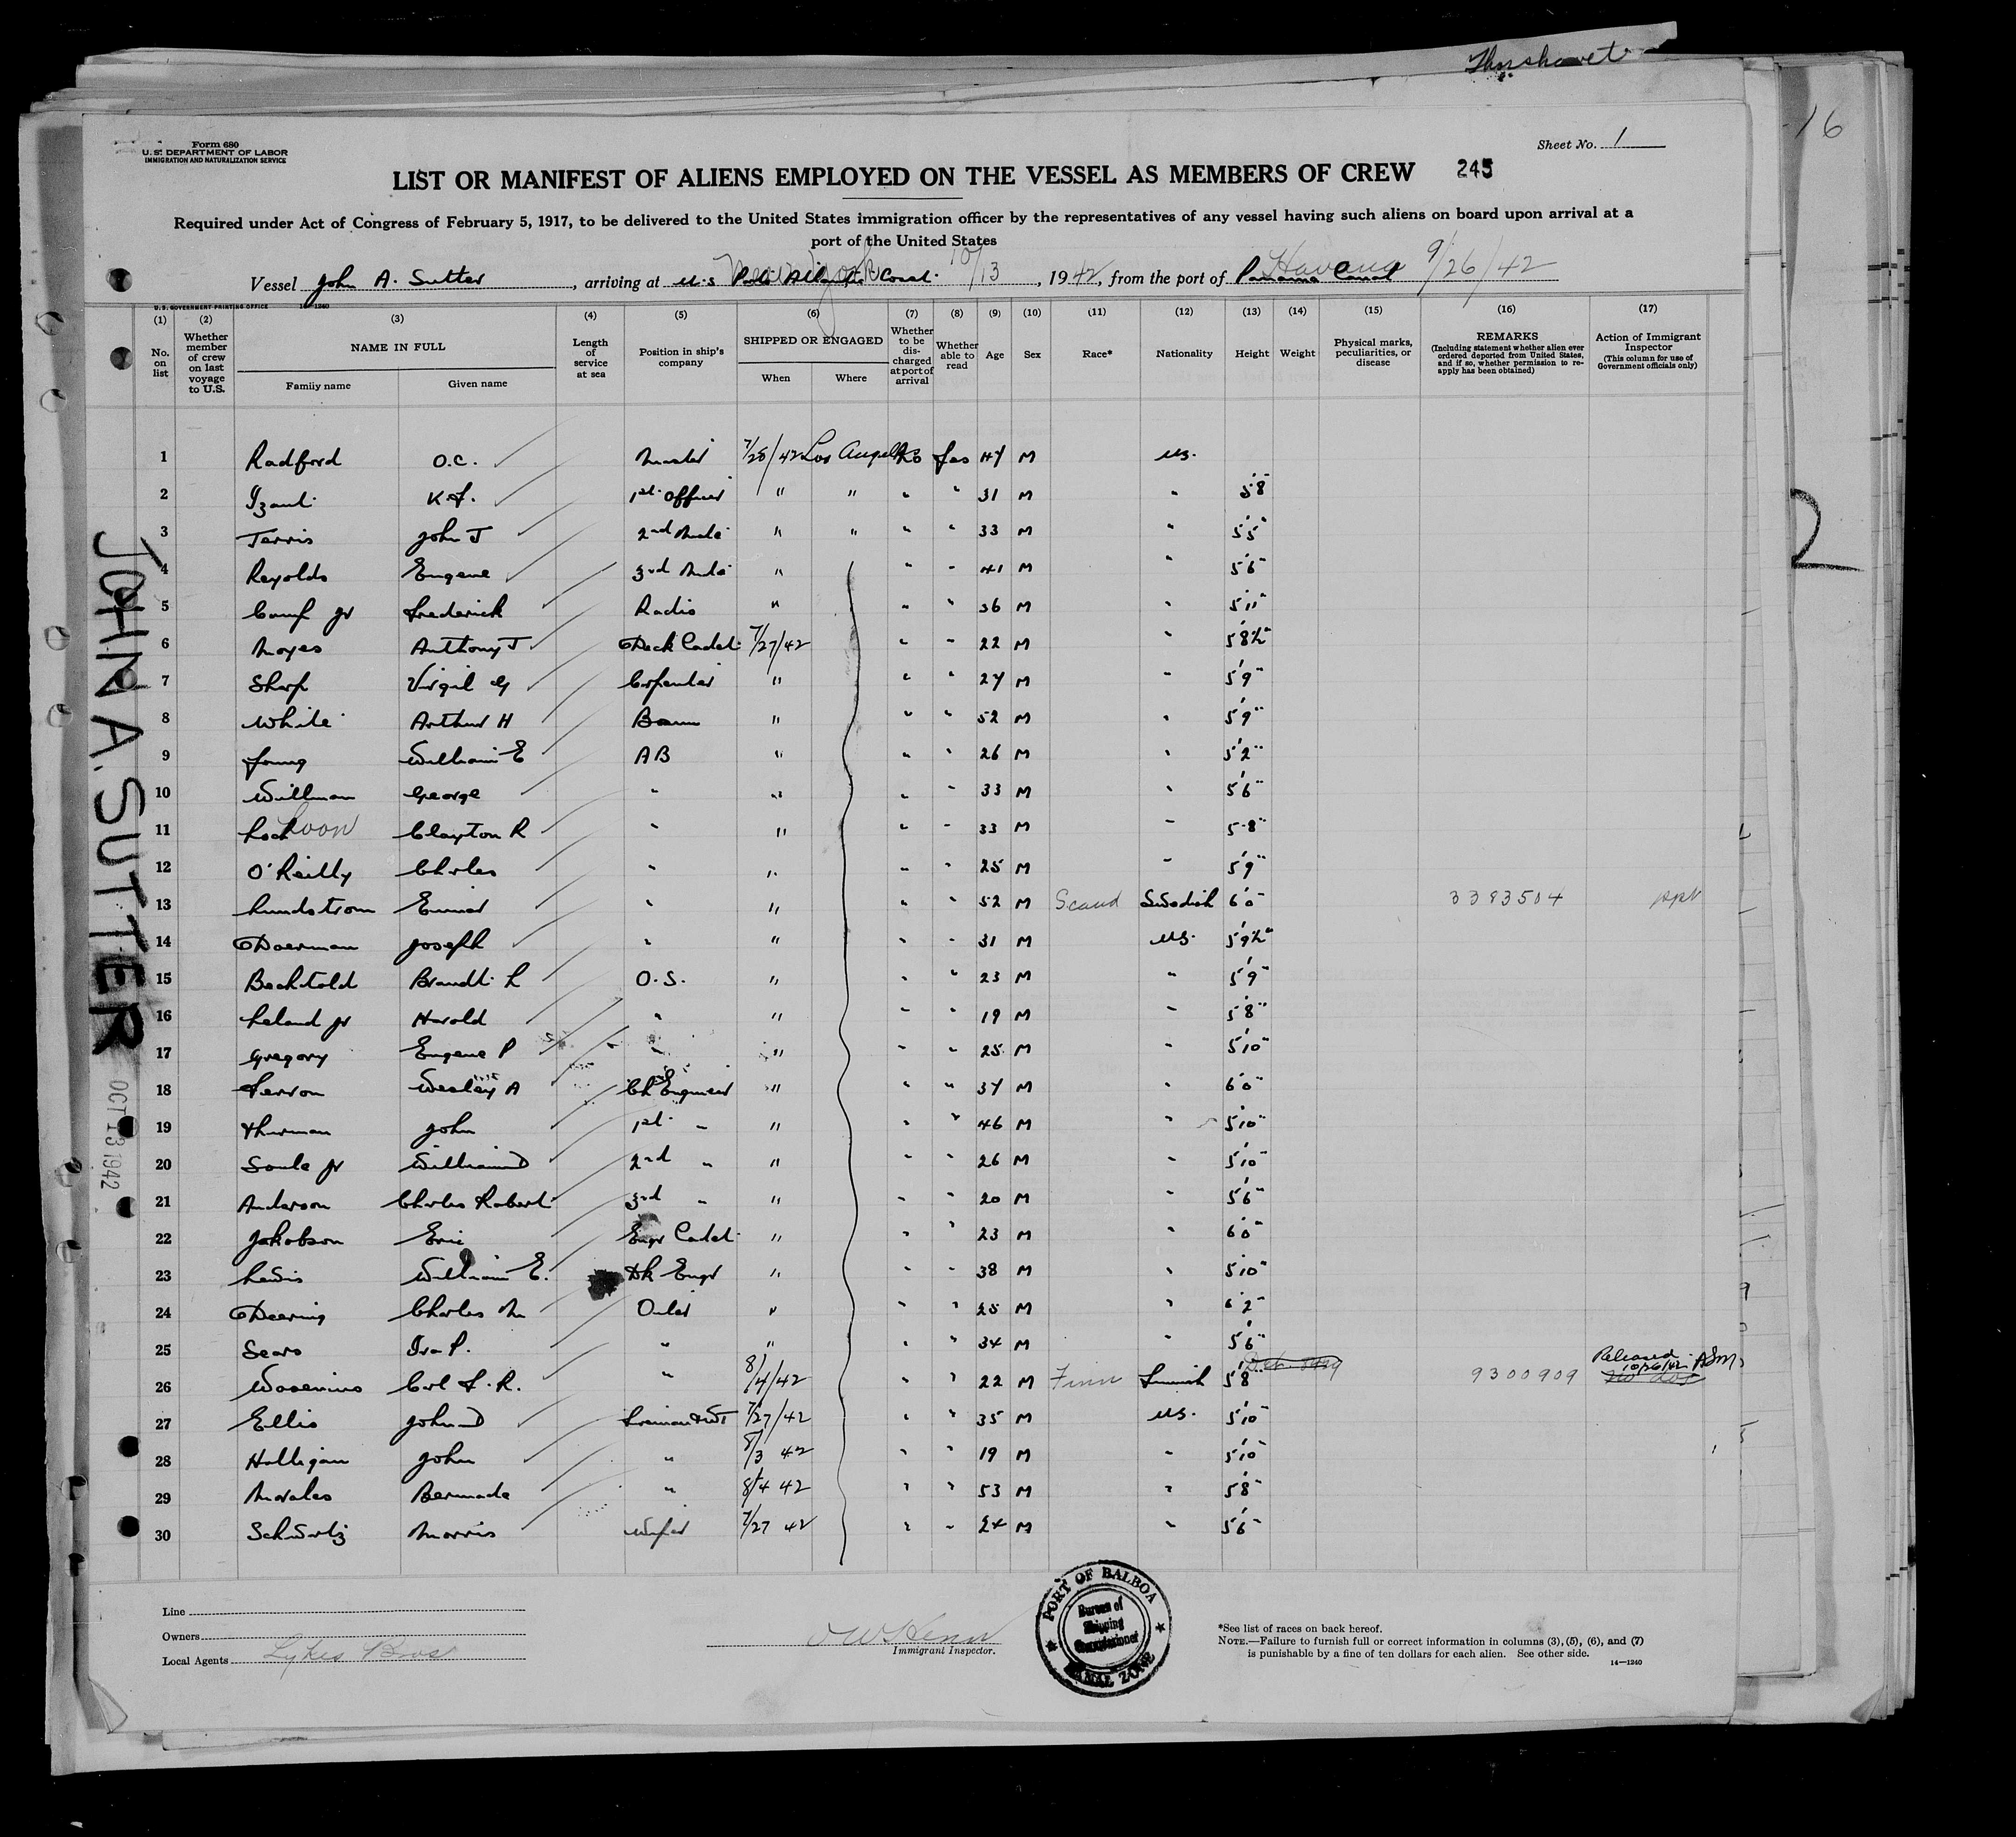 Form 680
U. S. DEPARTMENT OF LABOR
IMMIGRATION AND NATURALIZATION SERVICE
Sheet No. 1
LIST OR MANIFEST OF ALIENS EMPLOYED ON THE VESSEL AS MEMBERS OF CREW 245
Required under Act of Congress of February 5, 1917, to be delivered to the United States immigration officer by the representatives of any vessel having such aliens on board upon arrival at a
port of the United States
Vessel John A. Sutter, arriving at U.S New York 10/13, 1942, from the port of Panama Canal Havana 9/26/42
U. S. GOVERNMENT PRINTING OFFICE 14-1240
(1) (2) (3) (4) (5) (6) (7) (8) (9) (10) (11) (12) (13) (14) (15) (16) (17)
No. on list
Whether member of crew on last voyage to U.S.
NAME IN FULL
Family name
Given name
Length of service at sea
Position in ship's company
SHIPPED OR ENGAGED
When
Where
Whether to be discharged at port of arrival
Whether able to read
Age
Sex
Race*
Nationality
Height
Weight
Physical marks, peculiarities, or disease
REMARKS
(Including statement whether alien ever ordered deported from United States, and if so, whether permission to reapply has been obtained)
Action of Immigrant Inspector
(This column for use of Government officials only)
1 Radford O.C. Master 7/28/42 Los Angeles No Yes 47 M U.S.
2 K.F. 1st Officer " " " " 31 M " 5'8"
3 Ferris John J 2nd Mate " " " " 33 M " 5'5"
4 Reyolds Eugene 3rd Mate " " " 41 M " 5'6"
5 Camp Jr Frederick Radio " " " 36 M " 5'11"
6 Noyes Anthony J Deck Cadet 7/27/42 " " 22 M " 5'8½"
7 Sharp Virgil G Carpenter " " " 27 M " 5'9"
8 White Arthur H Bosun " " " 52 M " 5'9"
9 Young William E AB " " " 26 M " 5'2"
10 Willman George " " " " 33 M " 5'6"
11 Loon Clayton R " " " " 33 M " 5'8"
12 O'Reilly Charles " " " " 25 M " 5'9"
13 Lundstrom Einar " " " " 52 M Scand Swedish 6'0" 3383504
14 Doerman Joseph " " " " 31 M U.S. 5'9½"
15 Bechtold Brandt L O.S. " " " 23 M " 5'9"
16 Leland Jr Harold " " " " 19 M " 5'8"
17 Gregory Eugene P " " " " 25 M " 5'10"
18 Ferron Wesley A Ch Engineer " " " 37 M " 6'0"
19 Thurman John 1st " " " " 46 M " 5'10"
20 Soule Jr William D 2nd " " " " 26 M " 5'10"
21 Anderson Charles Robert 3rd " " " " 20 M " 5'6"
22 Jakobson Eric Engr Cadet " " " 23 M " 6'0"
23 Lewis William E. Dk Engr " " " 38 M " 5'10"
24 Deering Charles M Oiler " " " 25 M " 6'2"
25 Sears Ira P. " " " " 34 M " 5'6"
26 Carl F. R. " 8/4/42 " " 22 M Finn Finnish 5'8" 9300909 Released 10/26/42
27 Ellis John D Fireman & WT 7/27/42 " " 35 M U.S. 5'10"
28 Halligan John " 8/3 42 " " 19 M " 5'10"
29 Morales Bermade " 8/4 42 " " 53 M " 5'8"
30 Schwartz Morris Wiper 7/27 42 " " 24 M " 5'6"
JOHN A. SUTTER
OCT 13 1942
Line
Owners
Local Agents Lykes Bros
Immigrant Inspector.
PORT OF BALBOA
Bureau of Shipping Commissioner
CANAL ZONE
*See list of races on back hereof.
NOTE.—Failure to furnish full or correct information in columns (3), (5), (6), and (7)
is punishable by a fine of ten dollars for each alien. See other side.
14—1240
16
2